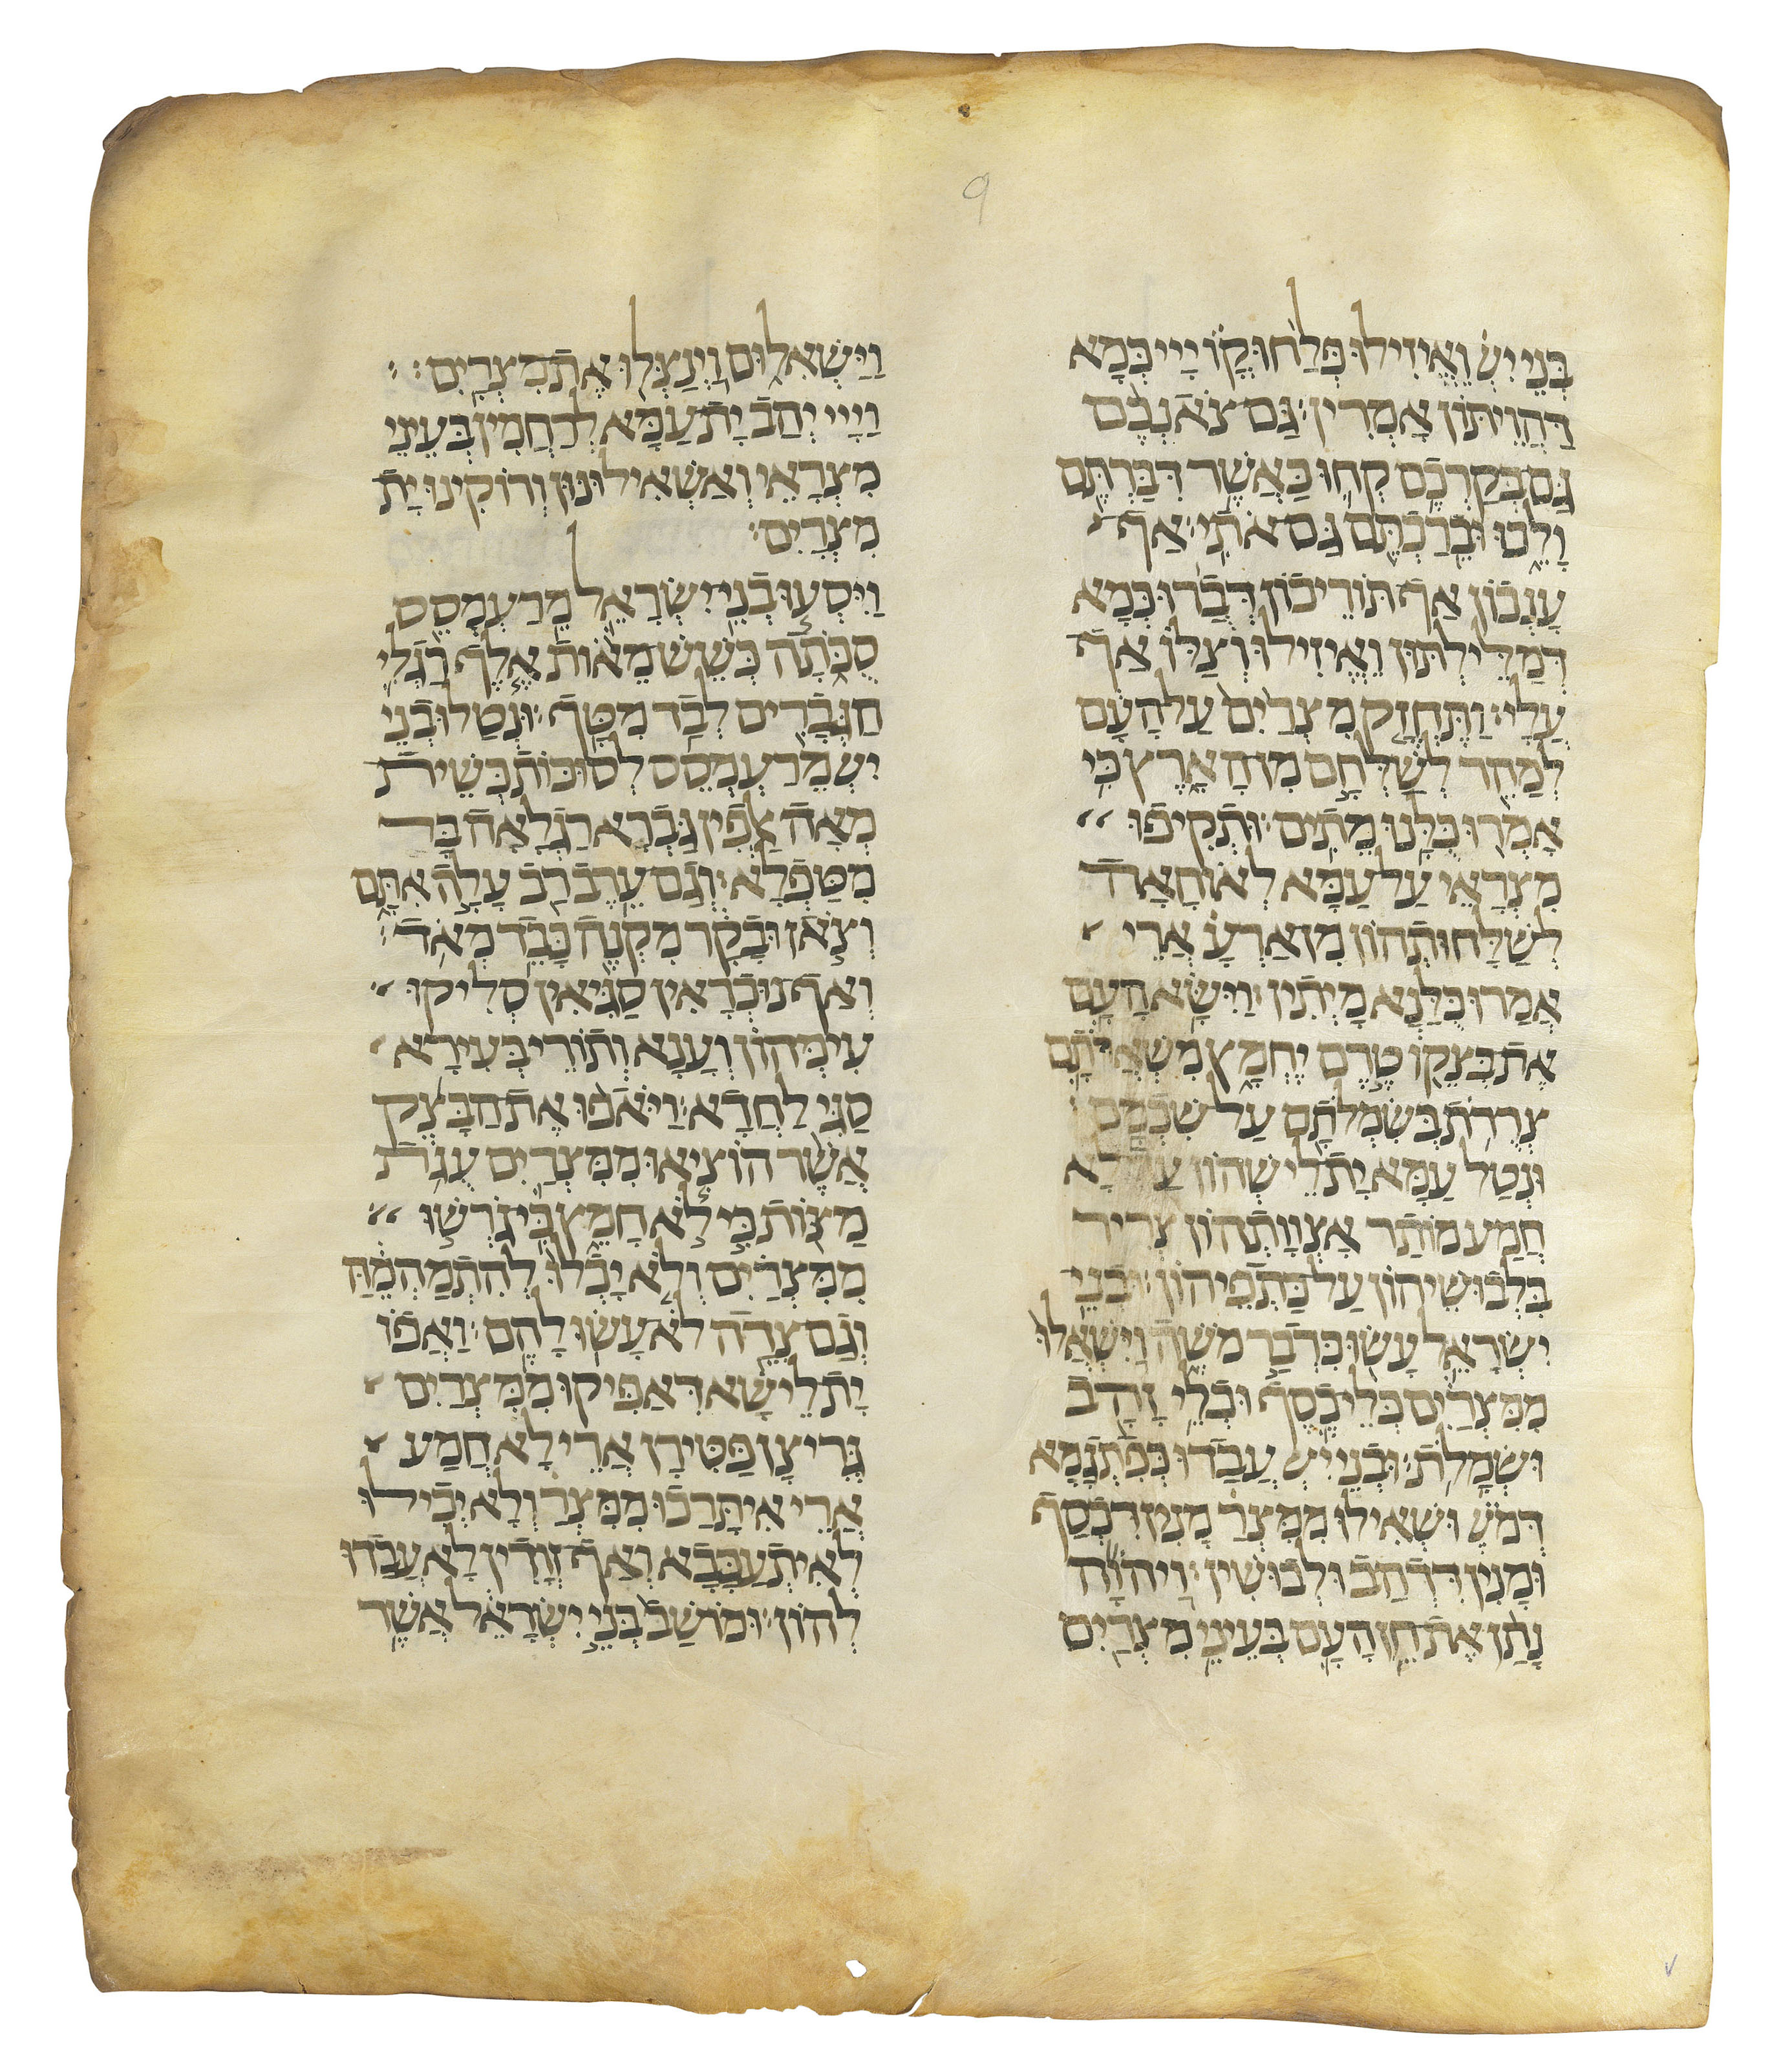 9
בְּנֵי יִשְׂ וֶאֱיזִילוּ פְּלַחוּ קֳ יְיָי כְּמָא
דַהֲוֵיתוֹן אָמְרִין׃ גַּם צֹאנְכֶם
גַּם בְּקַרְכֶם קְחוּ כַּאֲשֶׁר דִּבַּרְתֶּם
וָלֵכוּ וּבֵרַכְתֶּם גַּם אֹתִי׃ אַף
עָנְכוֹן אַף תּוֹרֵיכוֹן דְּבַרוּ כְּמָא
דְּמַלֵּילְתּוּן וֶאֱיזִילוּ וְצַלּוֹ אַף
עֲלָי׃ וַתֶּחֱזַק מִצְרַיִם עַל הָעָם
לְמַהֵר לְשַׁלְּחָם מִן הָאָרֶץ כִּי
אָמְרוּ כֻּלָּנוּ מֵתִים׃ וּתְקִיפוּ
מִצְרָאֵי עַל עַמָּא לְאוֹחָאָה
לְשַׁלָּחוּתְהוֹן מִן אַרְעָ אֲרֵי
אֲמַרוּ כֻּלַּנָא מָיְתִין׃ וַיִּשָּׂא הָעָם
אֶת בְּצֵקוֹ טֶרֶם יֶחְמָץ מִשְׁאֲרֹתָם
צְרֻרֹת בְּשִׂמְלֹתָם עַל שִׁכְמָם׃
וּנְטַל עַמָּא יָת לֵישְׁהוֹן עַד לָא
חֲמַע מוֹתַר אָצְוָתְהוֹן צְרִיר
בִּלְבוּשֵׁיהוֹן עַל כַּתְפֵיהוֹן׃ וּבְנֵי
יִשְׂרָאֵל עָשׂוּ כִּדְבַר מֹשֶׁה וַיִּשְׁאֲלוּ
מִמִּצְרַיִם כְּלֵי כֶסֶף וּכְלֵי זָהָב
וּשְׂמָלֹת׃ וּבְנֵי יִשְׂ עֲבַדוּ כְּפִתְגָמָא
דְּמֹשֶׁ וּשְׁאִילוּ מִמִּצְרַ מָנִין דִּכְסַף
וּמָנִין דִּדְהַב וּלְבוּשִׁין׃ וַיהוָה
נָתַן אֶת חֵן הָעָם בְּעֵינֵי מִצְרַיִם
וַיַּשְׁאִלוּם וַיְנַצְּלוּ אֶת מִצְרָיִם׃
וַיְיָי יְהַב יָת עַמָּא לְרַחֲמִין בְּעֵינֵי
מִצְרָאֵי וְאַשְׁאִילוּנּוּן וְרוֹקִינוּ יָת
מִצְרָיִם׃
וַיִּסְעוּ בְנֵי יִשְׂרָאֵל מֵרַעְמְסֵס
סֻכֹּתָה כְּשֵׁשׁ מֵאוֹת אֶלֶף רַגְלִי
הַגְּבָרִים לְבַד מִטָּף׃ וּנְטַלוּ בְּנֵי
יִשְׂ מֵרַעְמְסֵס לְסוּכּוֹת כְּשֵׁית
מְאָה אַלְפִין גַּבְרָא רַגְלָאָה בָּר
מִטַּפְלָא׃ וְגַם עֵרֶב רַב עָלָה אִתָּם
וְצֹאן וּבָקָר מִקְנֶה כָּבֵד מְאֹד׃
וְאַף נוּכְרָאִין סַגִּיאִין סְלִיקוּ
עִימְּהוֹן וְעָנָא וְתוֹרֵי בְּעִירָא
סַגִּי לַחְדָא׃ וַיֹּאפוּ אֶת הַבָּצֵק
אֲשֶׁר הוֹצִיאוּ מִמִּצְרַיִם עֻגֹת
מַצּוֹת כִּי לֹא חָמֵץ כִּי גֹרְשׁוּ
מִמִּצְרַיִם וְלֹא יָכְלוּ לְהִתְמַהְמֵהַּ
וְגַם צֵדָה לֹא עָשׂוּ לָהֶם׃ וַאֲפוֹ
יָת לֵישָׁא דְּאַפִּיקוּ מִמִּצְרַיִם
גְּרִיצָן פַּטִּירָן אֲרֵי לָא חֲמַע
אֲרֵי אִיתָּרַכוּ מִמִּצְרַ וְלָא יְכִילוּ
לְאִיתְעַכָּבָא וְאַף זְוָדִין לָא עֲבַדוּ
לְהוֹן׃ וּמוֹשַׁב בְּנֵי יִשְׂרָאֵל אֲשֶׁר